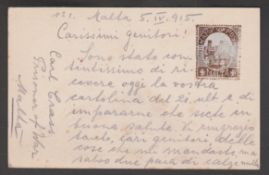 Malta 5. IV. 915.
Carissimi genitori!
Sono stato con
tentissimo di ri
cevere oggi la vostra
cartolina del alt. e di
impararne che siete in
buona salute. Vi ringrazio
tanto, cari genitori delle
cose che mi mandaste, ma
solo due paia di calze
Carl Crass
Prisoner of War
Malta